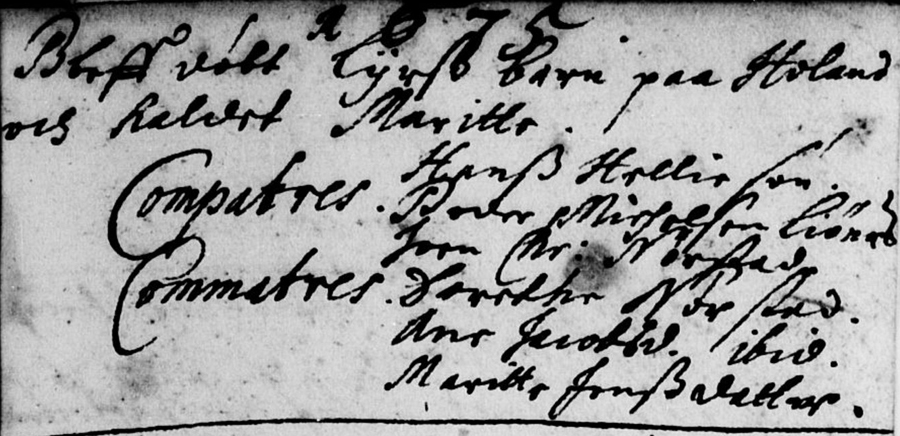 1675.
Bleff döbt Lÿrß barn paa Holand
och kaldet Maritte.
Compatres. Hanß Hellie søn.
Peder Michelsøn
Iven Chr: Norstad
Commatres. Dorethe Norstad.
Ane Jacobsd. ibid.
Maritte Jenß datter.